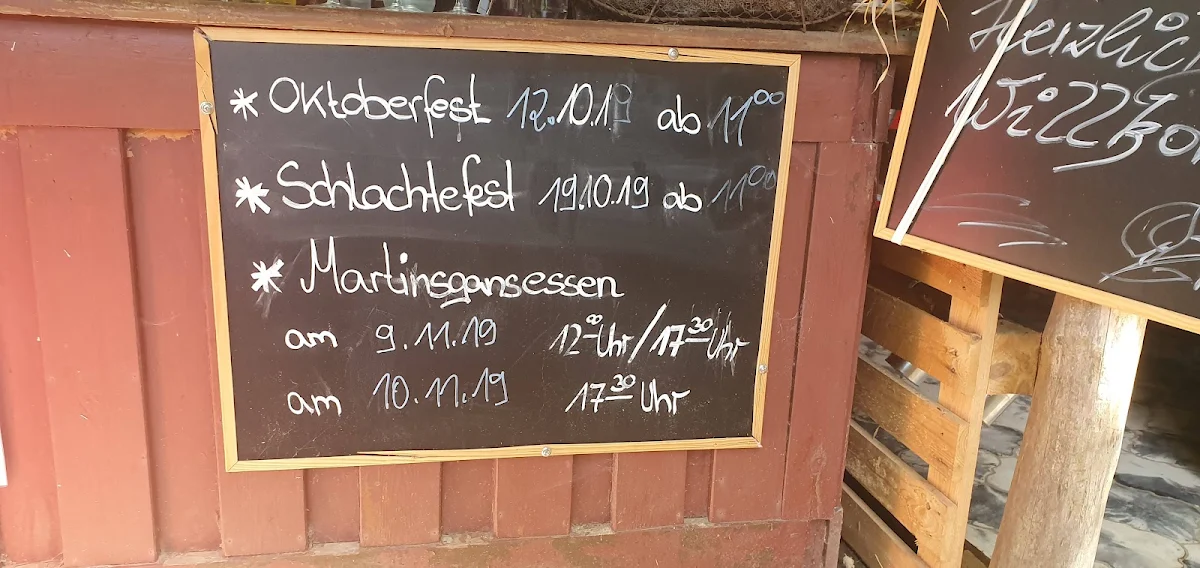 * Oktoberfest 12.10.19 ab 11⁰⁰
* Schlachtefest 19.10.19 ab 11⁰⁰
* Martinsgansessen
am 9.11.19 12⁰⁰ Uhr/17³⁰ Uhr
am 10.11.19 17³⁰ Uhr
Herzlic
Willko